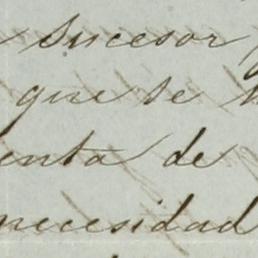 Sucesor
que se
enta de
necesidad